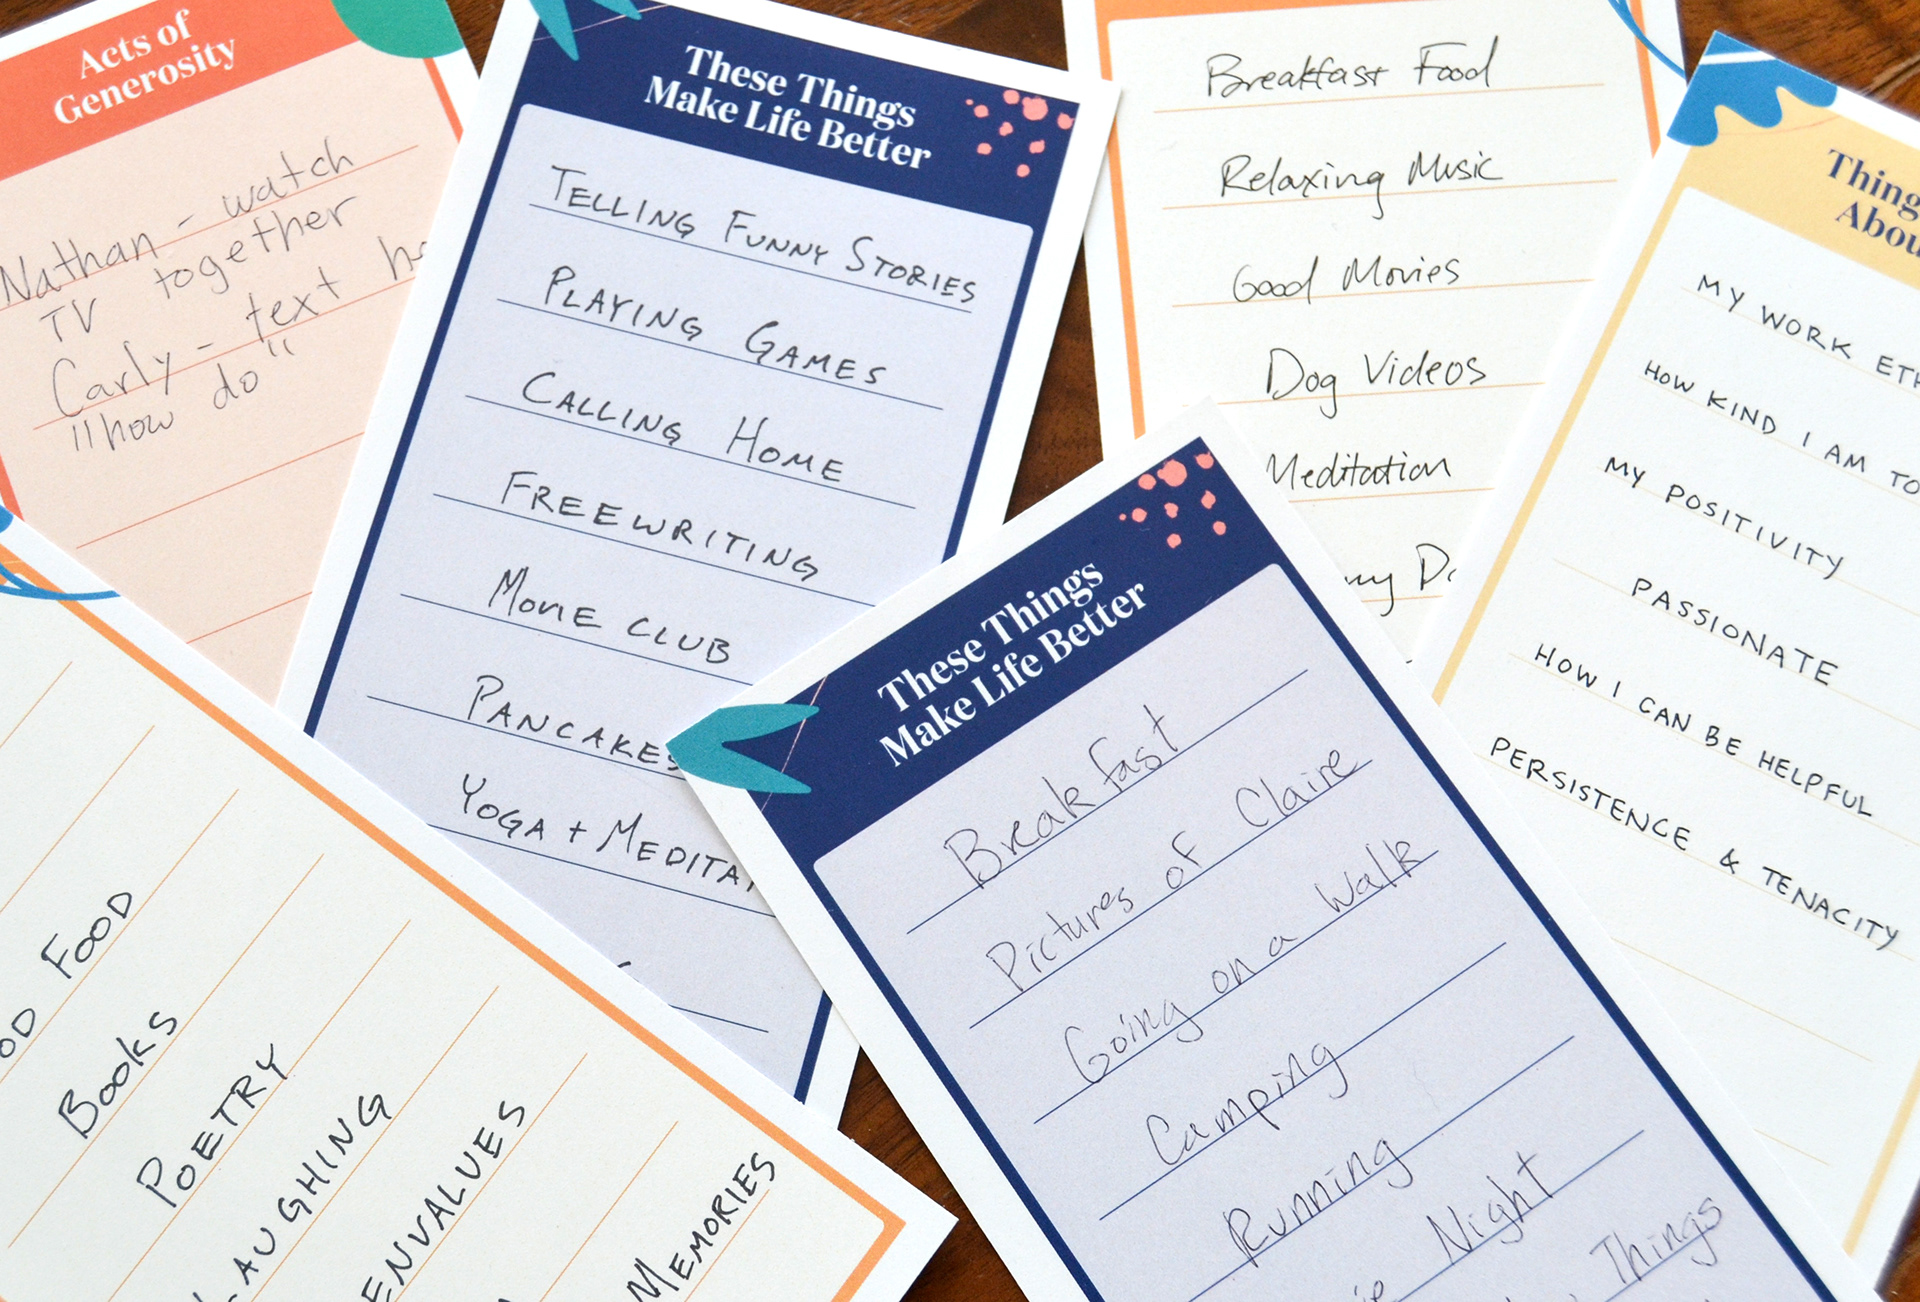 Acts of
Generosity
Nathan - watch
TV together
Carly - text
"how do"
These Things
Make Life Better
TELLING FUNNY STORIES
PLAYING GAMES
CALLING HOME
FREEWRITING
MOVIE CLUB
PANCAKES
YOGA + MEDITAT
Breakfast Food
Relaxing Music
Good Movies
Dog Videos
Meditation
Thing
Abou
MY WORK ETH
HOW KIND I AM TO
MY POSITIVITY
PASSIONATE
HOW I CAN BE HELPFUL
PERSISTENCE & TENACITY
These Things
Make Life Better
Breakfast
Pictures of Claire
Going on a Walk
Camping
Running
Night
Things
FOOD
BOOKS
POETRY
LAUGHING
ENVALUES
MEMORIES